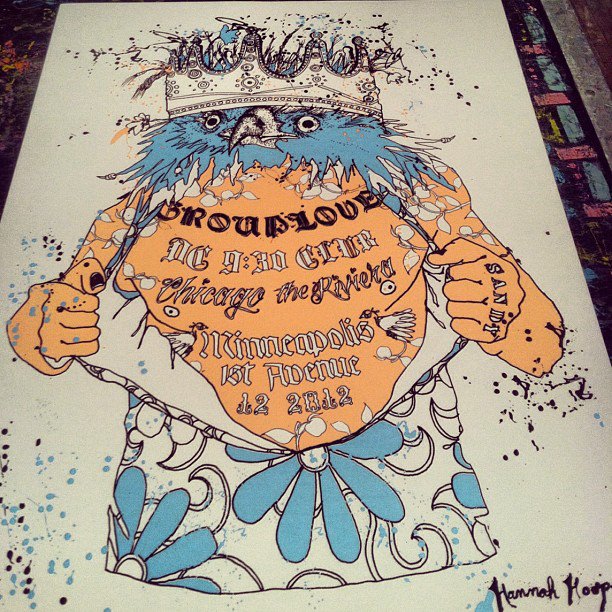 GROUPLOVE
DC 9:30 CLUB
Chicago the Riviera
SANDY
Minneapolis
1st Avenue
12 2012
Hannah Hoop